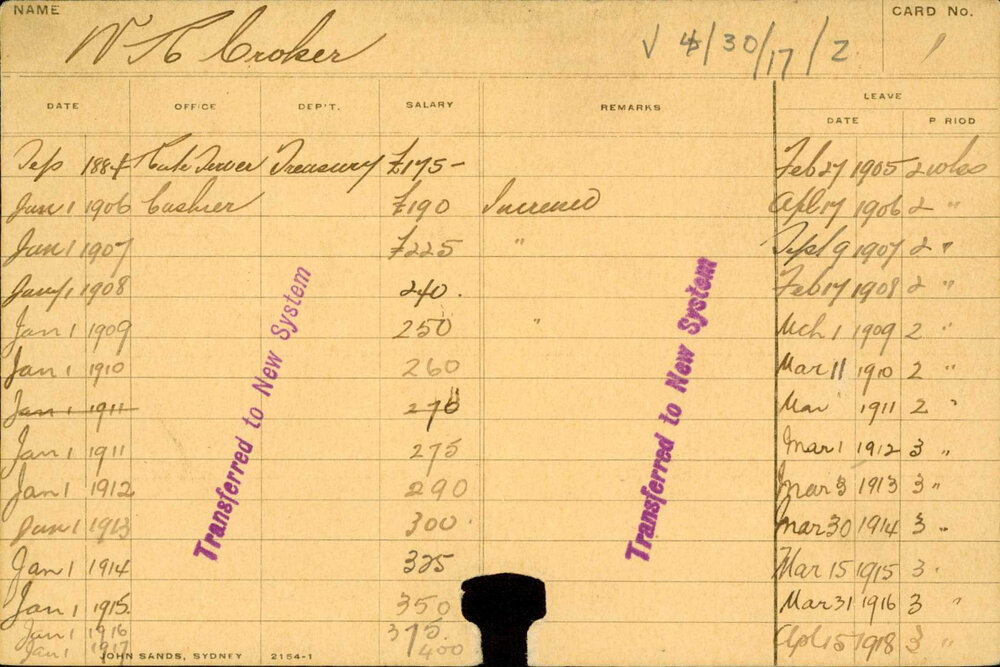 NAME W R Croker √ 4/30/17/2 CARD No. 1
LEAVE
DATE OFFICE DEP'T. SALARY REMARKS DATE P RIOD
Sep 1884 Treasury £175- Feb 27 1905 2 wks
Jan 1 1906 Cashier £190 Increased Apl 17 1906 2 "
Jan 1 1907 £225 " Sept 9 1907 2 "
Jany 1 1908 240. Feb 17 1908 2 "
Jan 1 1909 250 " Mch 1 1909 2 "
Jan 1 1910 260 Mar 11 1910 2 "
Jan 1 1911 Mar 1911 2 "
Jan 1 1911 275 Mar 1 1912 3 "
Jan 1 1912 290 Mar 3 1913 3 "
Jan 1 1913 300 Mar 30 1914 3 "
Jan 1 1914 325 Mar 15 1915 3 "
Jan 1 1915. 350 Mar 31 1916 3 "
Jan 1 1916 375. Apl 15 1918 3 "
Jan 1 1917 400
JOHN SANDS, SYDNEY 2154-1
Transferred to New System
Transferred to New System